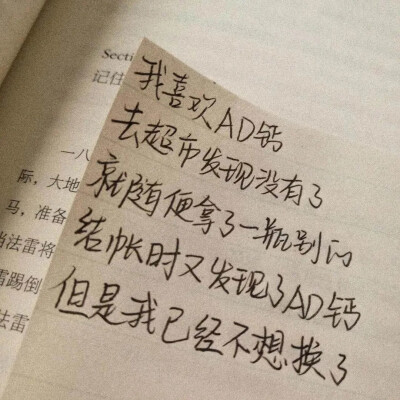 Secti
记住
我喜欢AD钙
去超市发现没有了
就随便拿了一瓶别的
结帐时又发现了AD钙
但是我已经不想换了
一八
际，大地
马，准备
当法雷将
雷踢倒
法雷